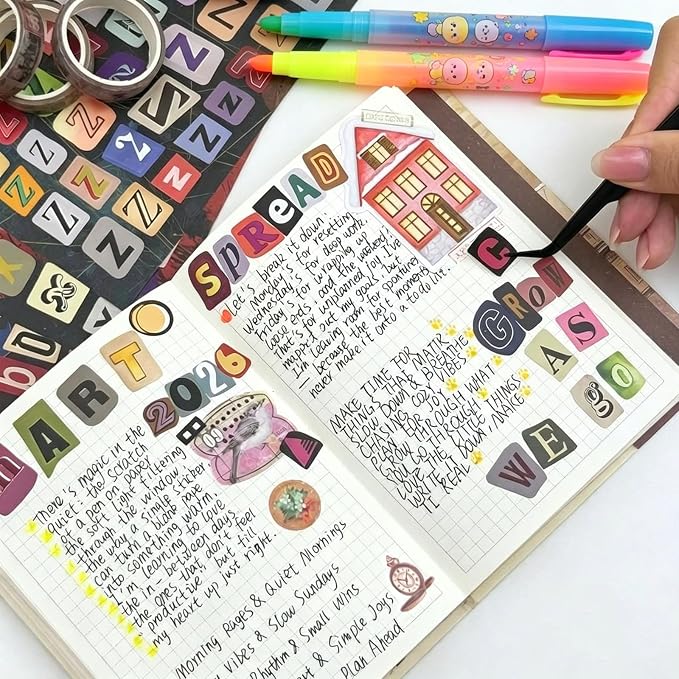 ART
2026
There's magic in the
quiet: the scratch
of a pen on paper
the soft light filtering
through the window,
the way a single sticker
can turn a blank page
into something warm.
I'm learning to love
the in-between days
the ones that don't feel
"productive" but fill
my heart up just right.
Morning Pages & Quiet Mornings
Vibes & Slow Sundays
Rhythm & Small Wins
& Simple Joys
Plan Ahead
SPREAD
Let's break it down:
Monday's for resetting
Wednesday's for deep work.
Friday's for wrapping up
loose ends, and the weekend?
That's for unplanned joy I've
mapped out my goals, but
I'm leaving room for spontaneity
— because the best moments
never make it onto a to-do list.
G
GROW
AS
WE go
MAKE TIME FOR
THINGS THAT MATTR
SLOW DOWN & BREATHE
CHASING COZY
PLAN FOR JOY
GROW THROUGH WHAT
YOU GO THROUGH
LOVE THE LITTLE THINGS
WRITE IT DOWN, MAKE
IT REAL
Z
Z
Z
Z
Z
Z
Z
Z
X